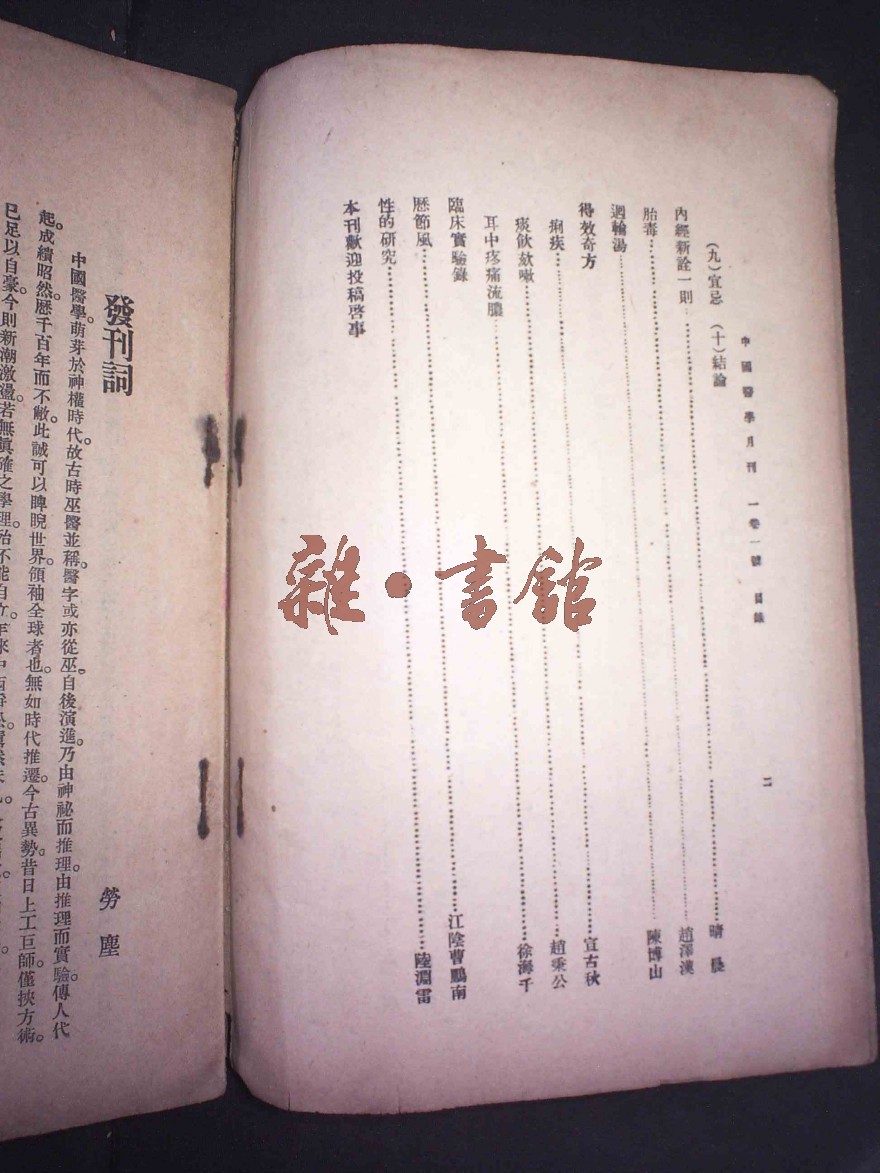 中國醫學月刊 一卷一號 目錄 二
(九)宜忌 (十)結論
內經新詮一則……晴
胎毒……趙澤漢
迴輪湯……陳博山
得效奇方
痢疾……宣古秋
痰飲欬嗽……趙秉公
耳中疼痛流膿……徐海千
臨床實驗錄
歷節風……江陰曹鵬南
性的研究……陸淵雷
本刊歡迎投稿啓事
發刊詞 勞塵
中國醫學。萌芽於神權時代。故古時巫醫並稱。醫字或亦從巫。自後演進。乃由神祕而推理。由推理而實驗。傳人代
起。成績昭然。歷千百年而不敝。此誠可以睥睨世界。領袖全球者也。無如時代推遷。今古異勢。昔日上工巨師。僅挾方術。
已足以自豪。今則新潮激盪。若無眞確之學理。殆不能自立。年來中西
雜·書館